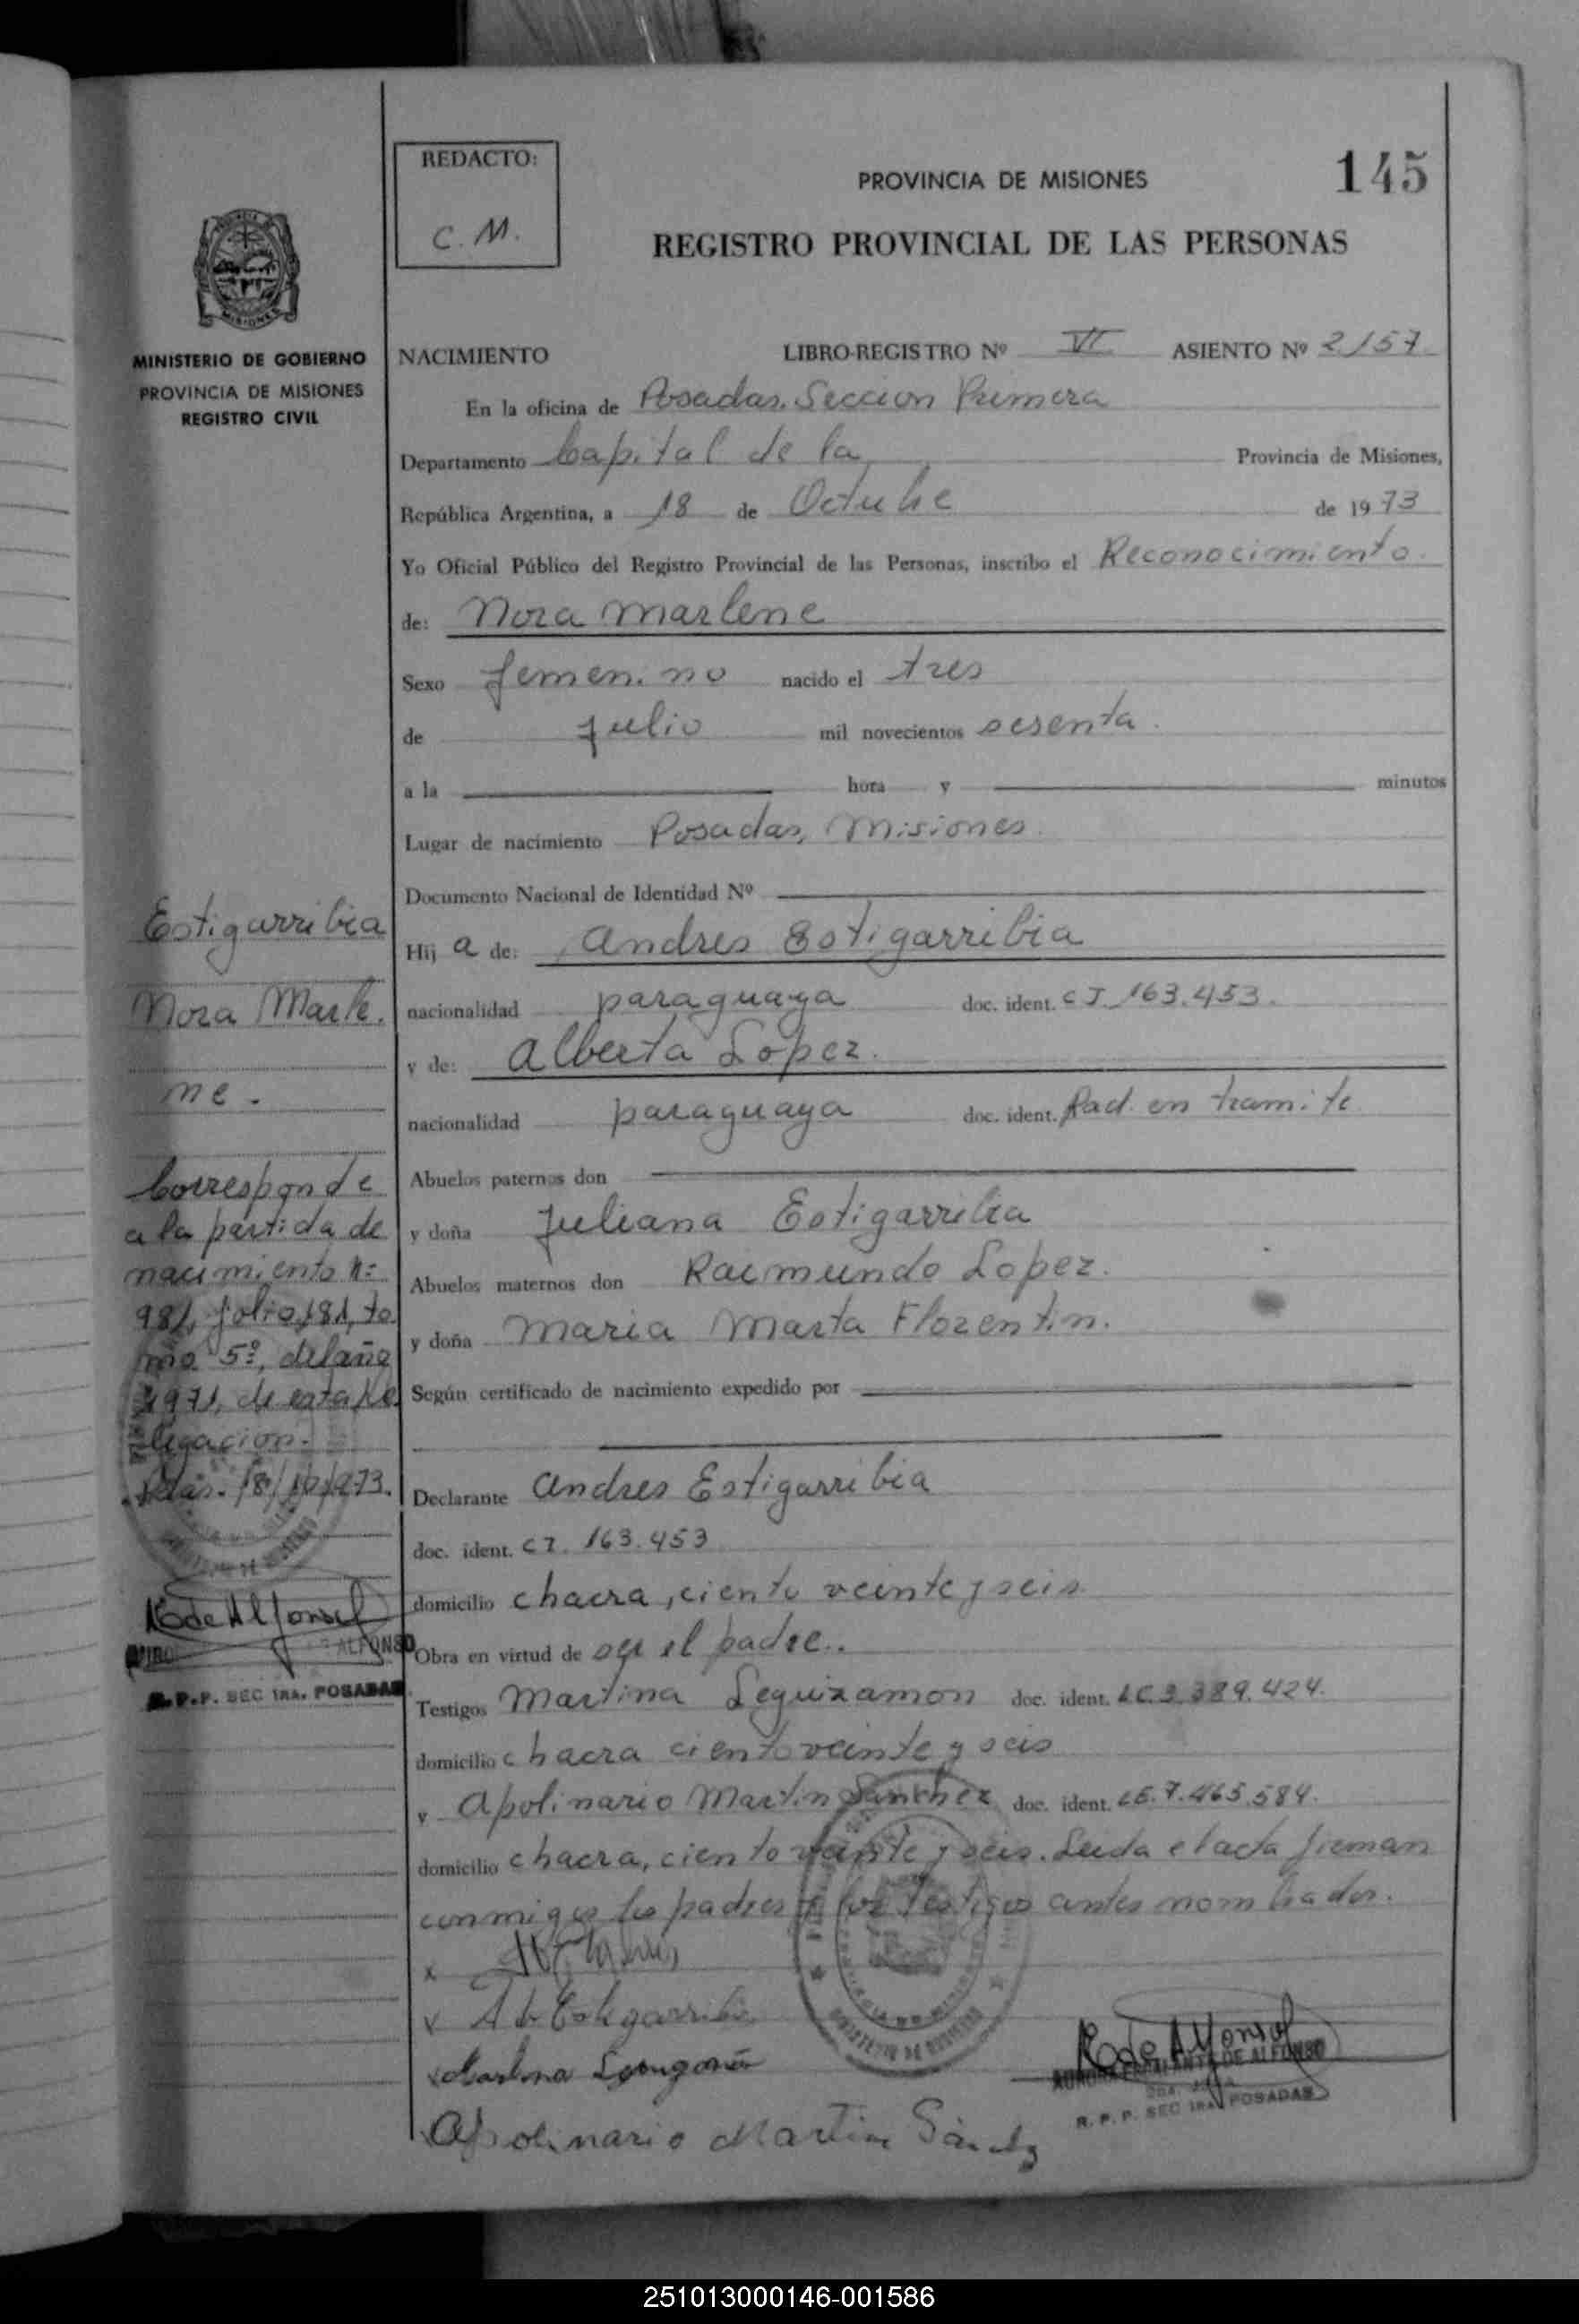 REDACTO:
C. M.
PROVINCIA DE MISIONES
145
REGISTRO PROVINCIAL DE LAS PERSONAS
MINISTERIO DE GOBIERNO
PROVINCIA DE MISIONES
REGISTRO CIVIL
NACIMIENTO LIBRO-REGISTRO Nº VI ASIENTO Nº 2157
En la oficina de Posadas. Seccion Primera
Departamento Capital de la Provincia de Misiones,
República Argentina, a 18 de Octubre de 1973
Yo Oficial Público del Registro Provincial de las Personas, inscribo el Reconocimiento.
de: Nora Marlene
Sexo femenino nacido el tres
de julio mil novecientos sesenta.
a la hora y minutos
Lugar de nacimiento Posadas, Misiones.
Documento Nacional de Identidad Nº
Hija de: Andres Estigarribia
nacionalidad paraguaya doc. ident. CI. 163.453.
y de: Alberta Lopez.
nacionalidad paraguaya doc. ident. Rad. en tramite
Abuelos paternos don
y doña Juliana Estigarribia
Abuelos maternos don Raimundo Lopez.
y doña Maria Marta Florentin.
Según certificado de nacimiento expedido por
Declarante Andres Estigarribia
doc. ident. CI. 163.453
domicilio chacra, ciento veinte y seis
Obra en virtud de ser el padre..
Testigos Martina Leguizamon doc. ident. LC.3.389.424.
domicilio chacra ciento veinte y seis
y Apolinario Martin Sanchez doc. ident. LE.7.465.584.
domicilio chacra, ciento veinte y seis. Leida el acta firman
conmigo los padres y los testigos antes nombrados.
x
x A b Estigarribia
x Martina Leguizamón
Apolinario Martin Sanchez
DE ALFONSO
R. P. P. SEC 1RA. POSADAS
Estigarribia
Nora Marle.
ne.
Corresponde
a la partida de
nacimiento nº
981, folio 181, to
mo 5º, del año
1971, de esta De
legacion.
Pdas. 18/10/973.
ALFONSO
R.P.P. SEC 1RA. POSADAS
251013000146-001586